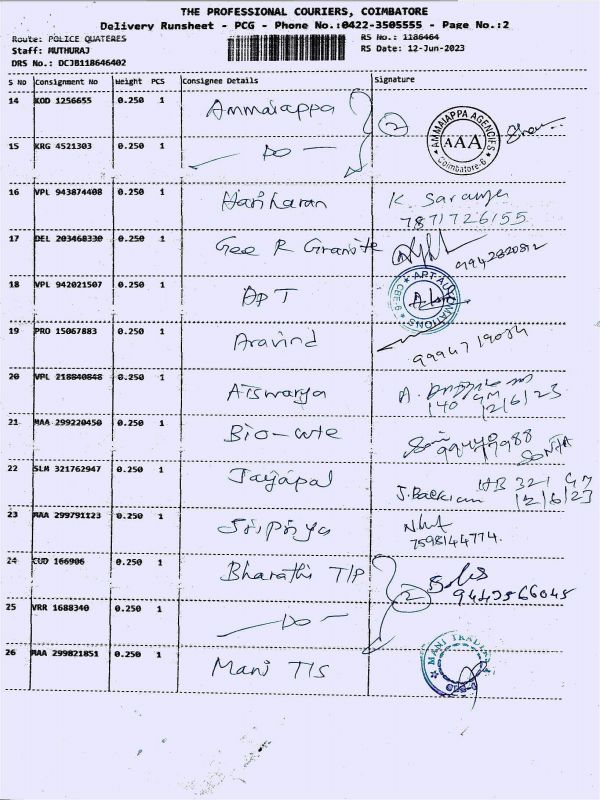 THE PROFESSIONAL COURIERS, COIMBATORE
Delivery Runsheet - PCG - Phone No.:0422-3505555 - Page No.:2
Route: POLICE QUATERES
Staff: MUTHURAJ
DRS No.: DCJB118646402
RS No.: 1186464
RS Date: 12-Jun-2023
S No Consignment No Weight PCS Consignee Details Signature
14 KOD 1256655 0.250 1 Ammaiappa 2
AMMAIAPPA AGENCIES
AAA
Coimbatore-6
15 KRG 4521303 0.250 1 — Do —
16 VPL 943874408 0.250 1 Hariharan K. Saranya
7871726155
17 DEL 203468330 0.250 1 Gee R Granite
18 VPL 942021507 0.250 1 APT
APT AUTOMATIONS
CBE-6
19 PRO 15067883 0.250 1 Aravind
20 VPL 218840848 0.250 1 Aiswarya A.
12/6/23
21 MAA 299220450 0.250 1 Bio-wte
22 SLM 321762947 0.250 1 Jayapal
12/6/23
23 MAA 299791123 0.250 1 Sripriya
7598144774.
24 CUD 166906 0.250 1 Bharathi T/P 2
9443566048
25 VRR 1688340 0.250 1 — Do —
26 MAA 299821851 0.250 1 Mani T/S
MANI TRADERS